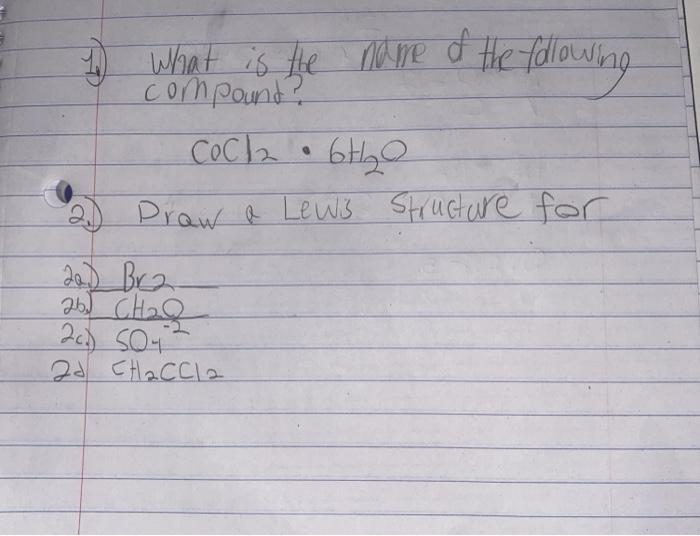 1.) What is the name of the following
compound?
CoCl2 • 6H2O
2.) Draw a Lewis structure for
2a.) Br2
2b.) CH2O
2c.) SO4-2
2d CH2CCl2